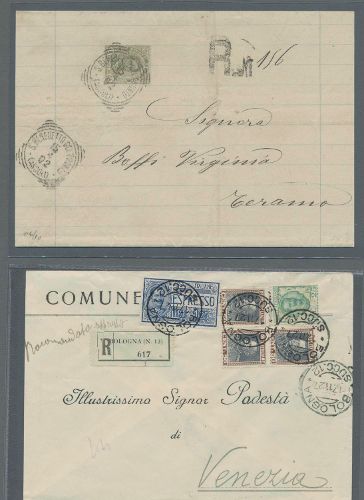 R. N 156
Signora
Beffi Virginia
Teramo
COMUNE
ESPRESSO
Raccomandata espresso
R BOLOGNA (N 12)
617
BOLOGNA
SUCC. 12
Illustrissimo Signor Podestà
di
Venezia